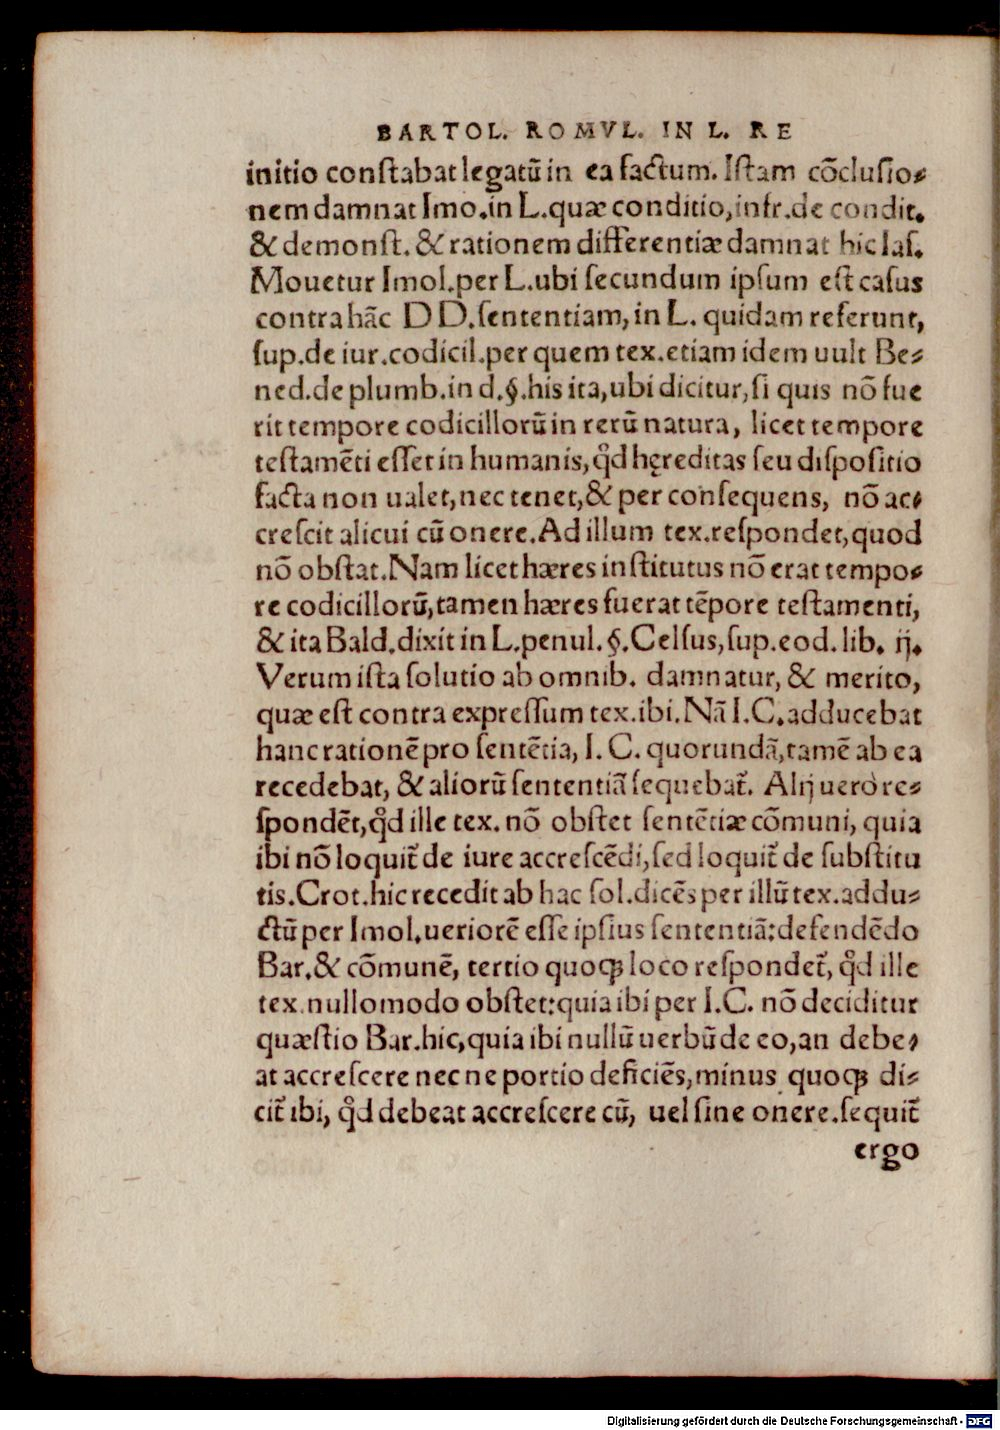 BARTOL. ROMVL. IN L. RE
initio conſtabat legatū in ea factum. Iſtam cōcluſio-
nem damnat Imo. in L. quæ conditio, infr. de condit.
& demonſt. & rationem differentiæ damnat hic Iaſ.
Mouetur Imol. per L. ubi ſecundum ipſum eſt caſus
contra hāc DD. ſententiam, in L. quidam referunt,
ſup. de iur. codicil. per quem tex. etiam idem uult Be-
ned. de plumb. in d. §. his ita, ubi dicitur, ſi quis nō fue
rit tempore codicillorū in rerū natura, licet tempore
teſtamēti eſſet in humanis, qd̛ hęreditas ſeu diſpoſitio
facta non ualet, nec tenet, & per conſequens, nō ac-
creſcit alicui cū onere. Ad illum tex. reſpondet, quod
nō obſtat. Nam licet hæres inſtitutus nō erat tempo-
re codicillorū, tamen hæres fuerat tēpore teſtamenti,
& ita Bald. dixit in L. penul. §. Celſus, ſup. eod. lib. ij.
Verum iſta ſolutio ab omnib. damnatur, & merito,
quæ eſt contra expreſſum tex. ibi. Nā I. C. adducebat
hanc rationē pro ſentētia, I. C. quorundā, tamē ab ea
recedebat, & aliorū ſententiā ſequebat᷑. Alij uerò re-
ſpondēt, qd̛ ille tex. nō obſtet ſentētiæ cōmuni, quia
ibi nō loquit᷑ de iure accreſcēdi, ſed loquit᷑ de ſubſtitu
tis. Crot. hic recedit ab hac ſol. dicēs per illū tex. addu-
ctū per Imol. ueriorē eſſe ipſius ſententiā: defendēdo
Bar. & cōmunē, tertio quoqꝫ loco reſpondet᷑, qd̛ ille
tex. nullo modo obſtet: quia ibi per I. C. nō deciditur
quæſtio Bar. hic, quia ibi nullū uerbū de eo, an debe-
at accreſcere nec ne portio deficiēs, minus quoqꝫ di-
cit᷑ ibi, qd̛ debeat accreſcere cū, uel ſine onere. ſequit᷑
ergo
Digitalisierung gefördert durch die Deutsche Forschungsgemeinschaft - DFG